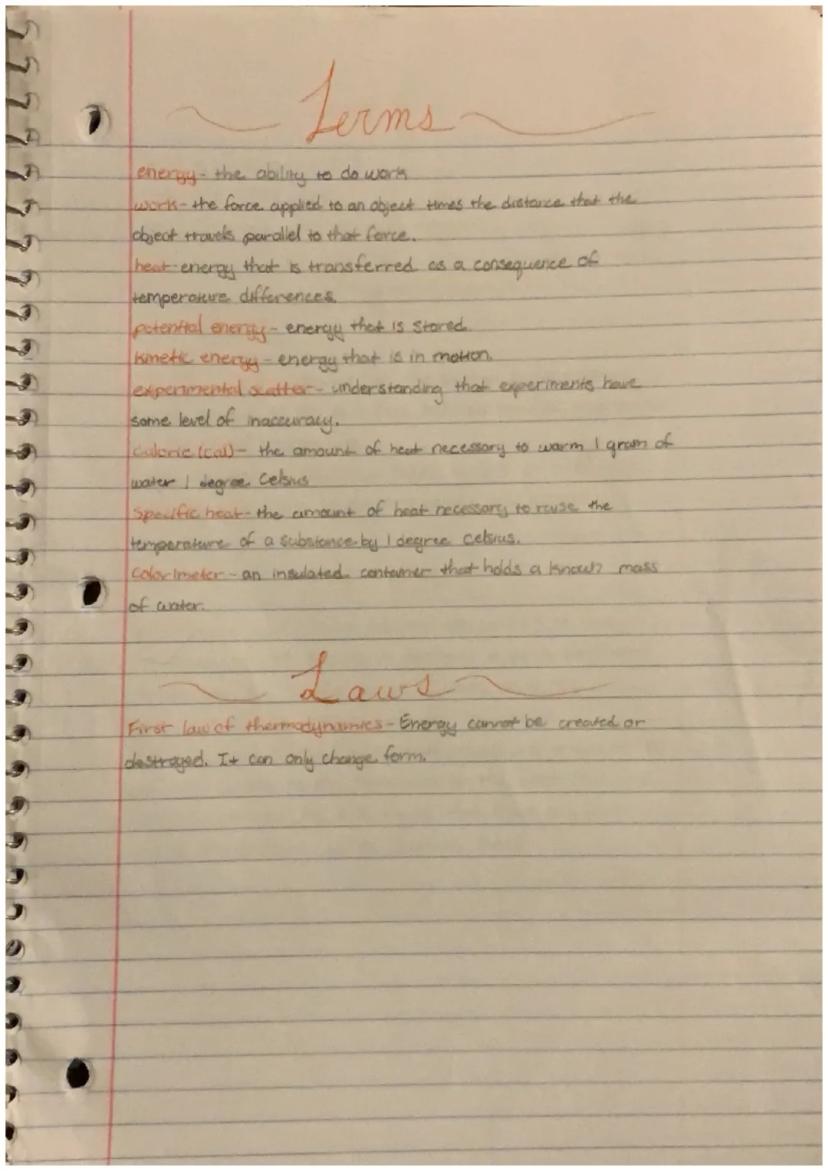 Terms
energy - the ability to do work
work - the force applied to an object times the distance that the
object travels parallel to that force.
heat - energy that is transferred as a consequence of
temperature differences.
potential energy - energy that is stored.
kinetic energy - energy that is in motion.
experimental scatter - understanding that experiments have
some level of inaccuracy.
Calorie (cal) - the amount of heat necessary to warm 1 gram of
water 1 degree Celsius
Specific heat - the amount of heat necessary to raise the
temperature of a substance by 1 degree Celsius.
Calorimeter - an insulated container that holds a known mass
of water.
Laws
First law of thermodynamics - Energy cannot be created or
destroyed. It can only change form.